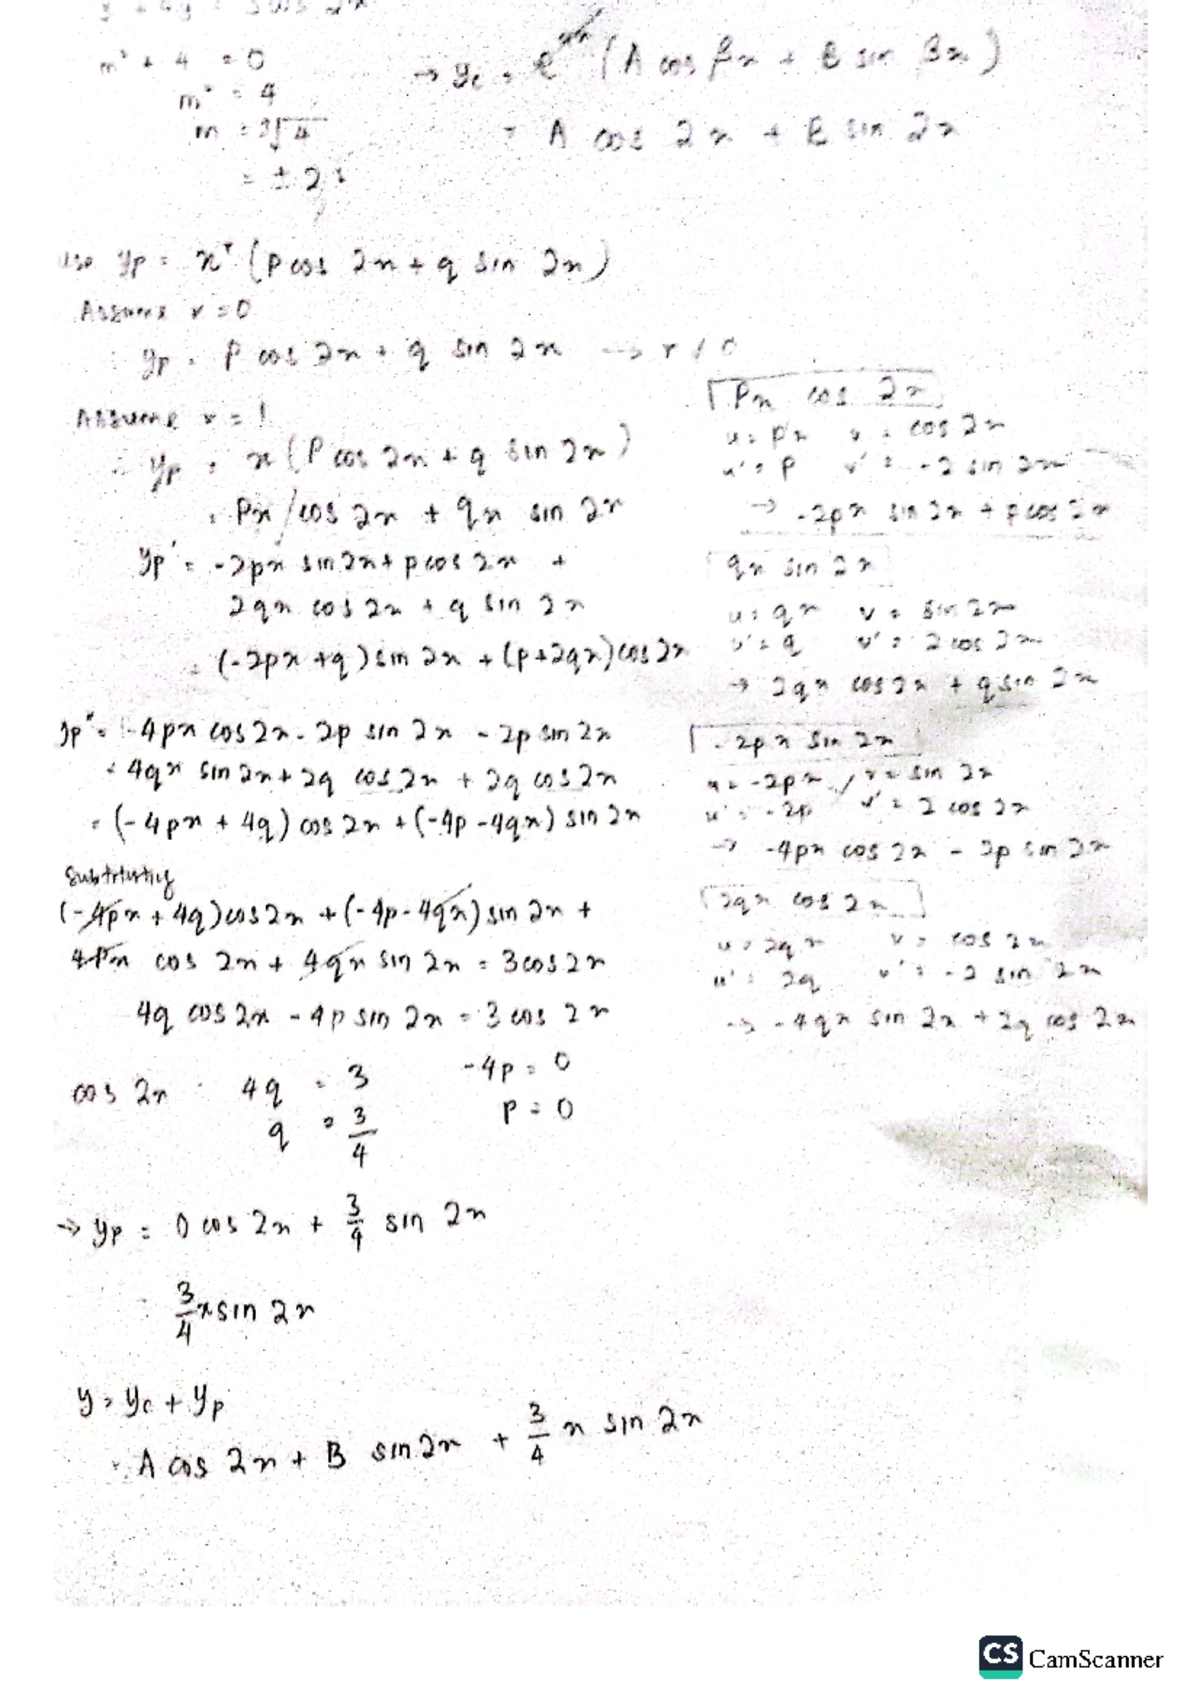 y'' + 4y = 3 cos 2x
m² + 4 = 0 → yc = e^αx (A cos βx + B sin βx)
m² = 4
m = √4 = A cos 2x + B sin 2x
= ± 2i
use yp = x^r (P cos 2x + q sin 2x)
Assume r = 0
∴ yp = P cos 2x + q sin 2x → r ≠ 0
Assume r = 1
∴ yp = x (P cos 2x + q sin 2x)
= Px cos 2x + qx sin 2x
yp' = -2px sin 2x + p cos 2x +
2qx cos 2x + q sin 2x
= (-2px + q) sin 2x + (p + 2qx) cos 2x
yp'' = -4px cos 2x - 2p sin 2x - 2p sin 2x
- 4qx sin 2x + 2q cos 2x + 2q cos 2x
= (-4px + 4q) cos 2x + (-4p - 4qx) sin 2x
Substituting
(-4px + 4q) cos 2x + (-4p - 4qx) sin 2x +
4Px cos 2x + 4qx sin 2x = 3 cos 2x
4q cos 2x - 4p sin 2x = 3 cos 2x
cos 2x : 4q = 3 -4p = 0
q = 3/4 p = 0
→ yp = 0 cos 2x + 3/4 sin 2x
= 3/4 x sin 2x
y = yc + yp
= A cos 2x + B sin 2x + 3/4 x sin 2x
Px cos 2x
u = Px v = cos 2x
u' = P v' = -2 sin 2x
→ -2px sin 2x + p cos 2x
qx sin 2x
u = qx v = sin 2x
u' = q v' = 2 cos 2x
→ 2qx cos 2x + q sin 2x
-2px sin 2x
u = -2px, v = sin 2x
u' = -2p v' = 2 cos 2x
→ -4px cos 2x - 2p sin 2x
2qx cos 2x
u = 2qx v = cos 2x
u' = 2q v' = -2 sin 2x
→ -4qx sin 2x + 2q cos 2x
CS CamScanner